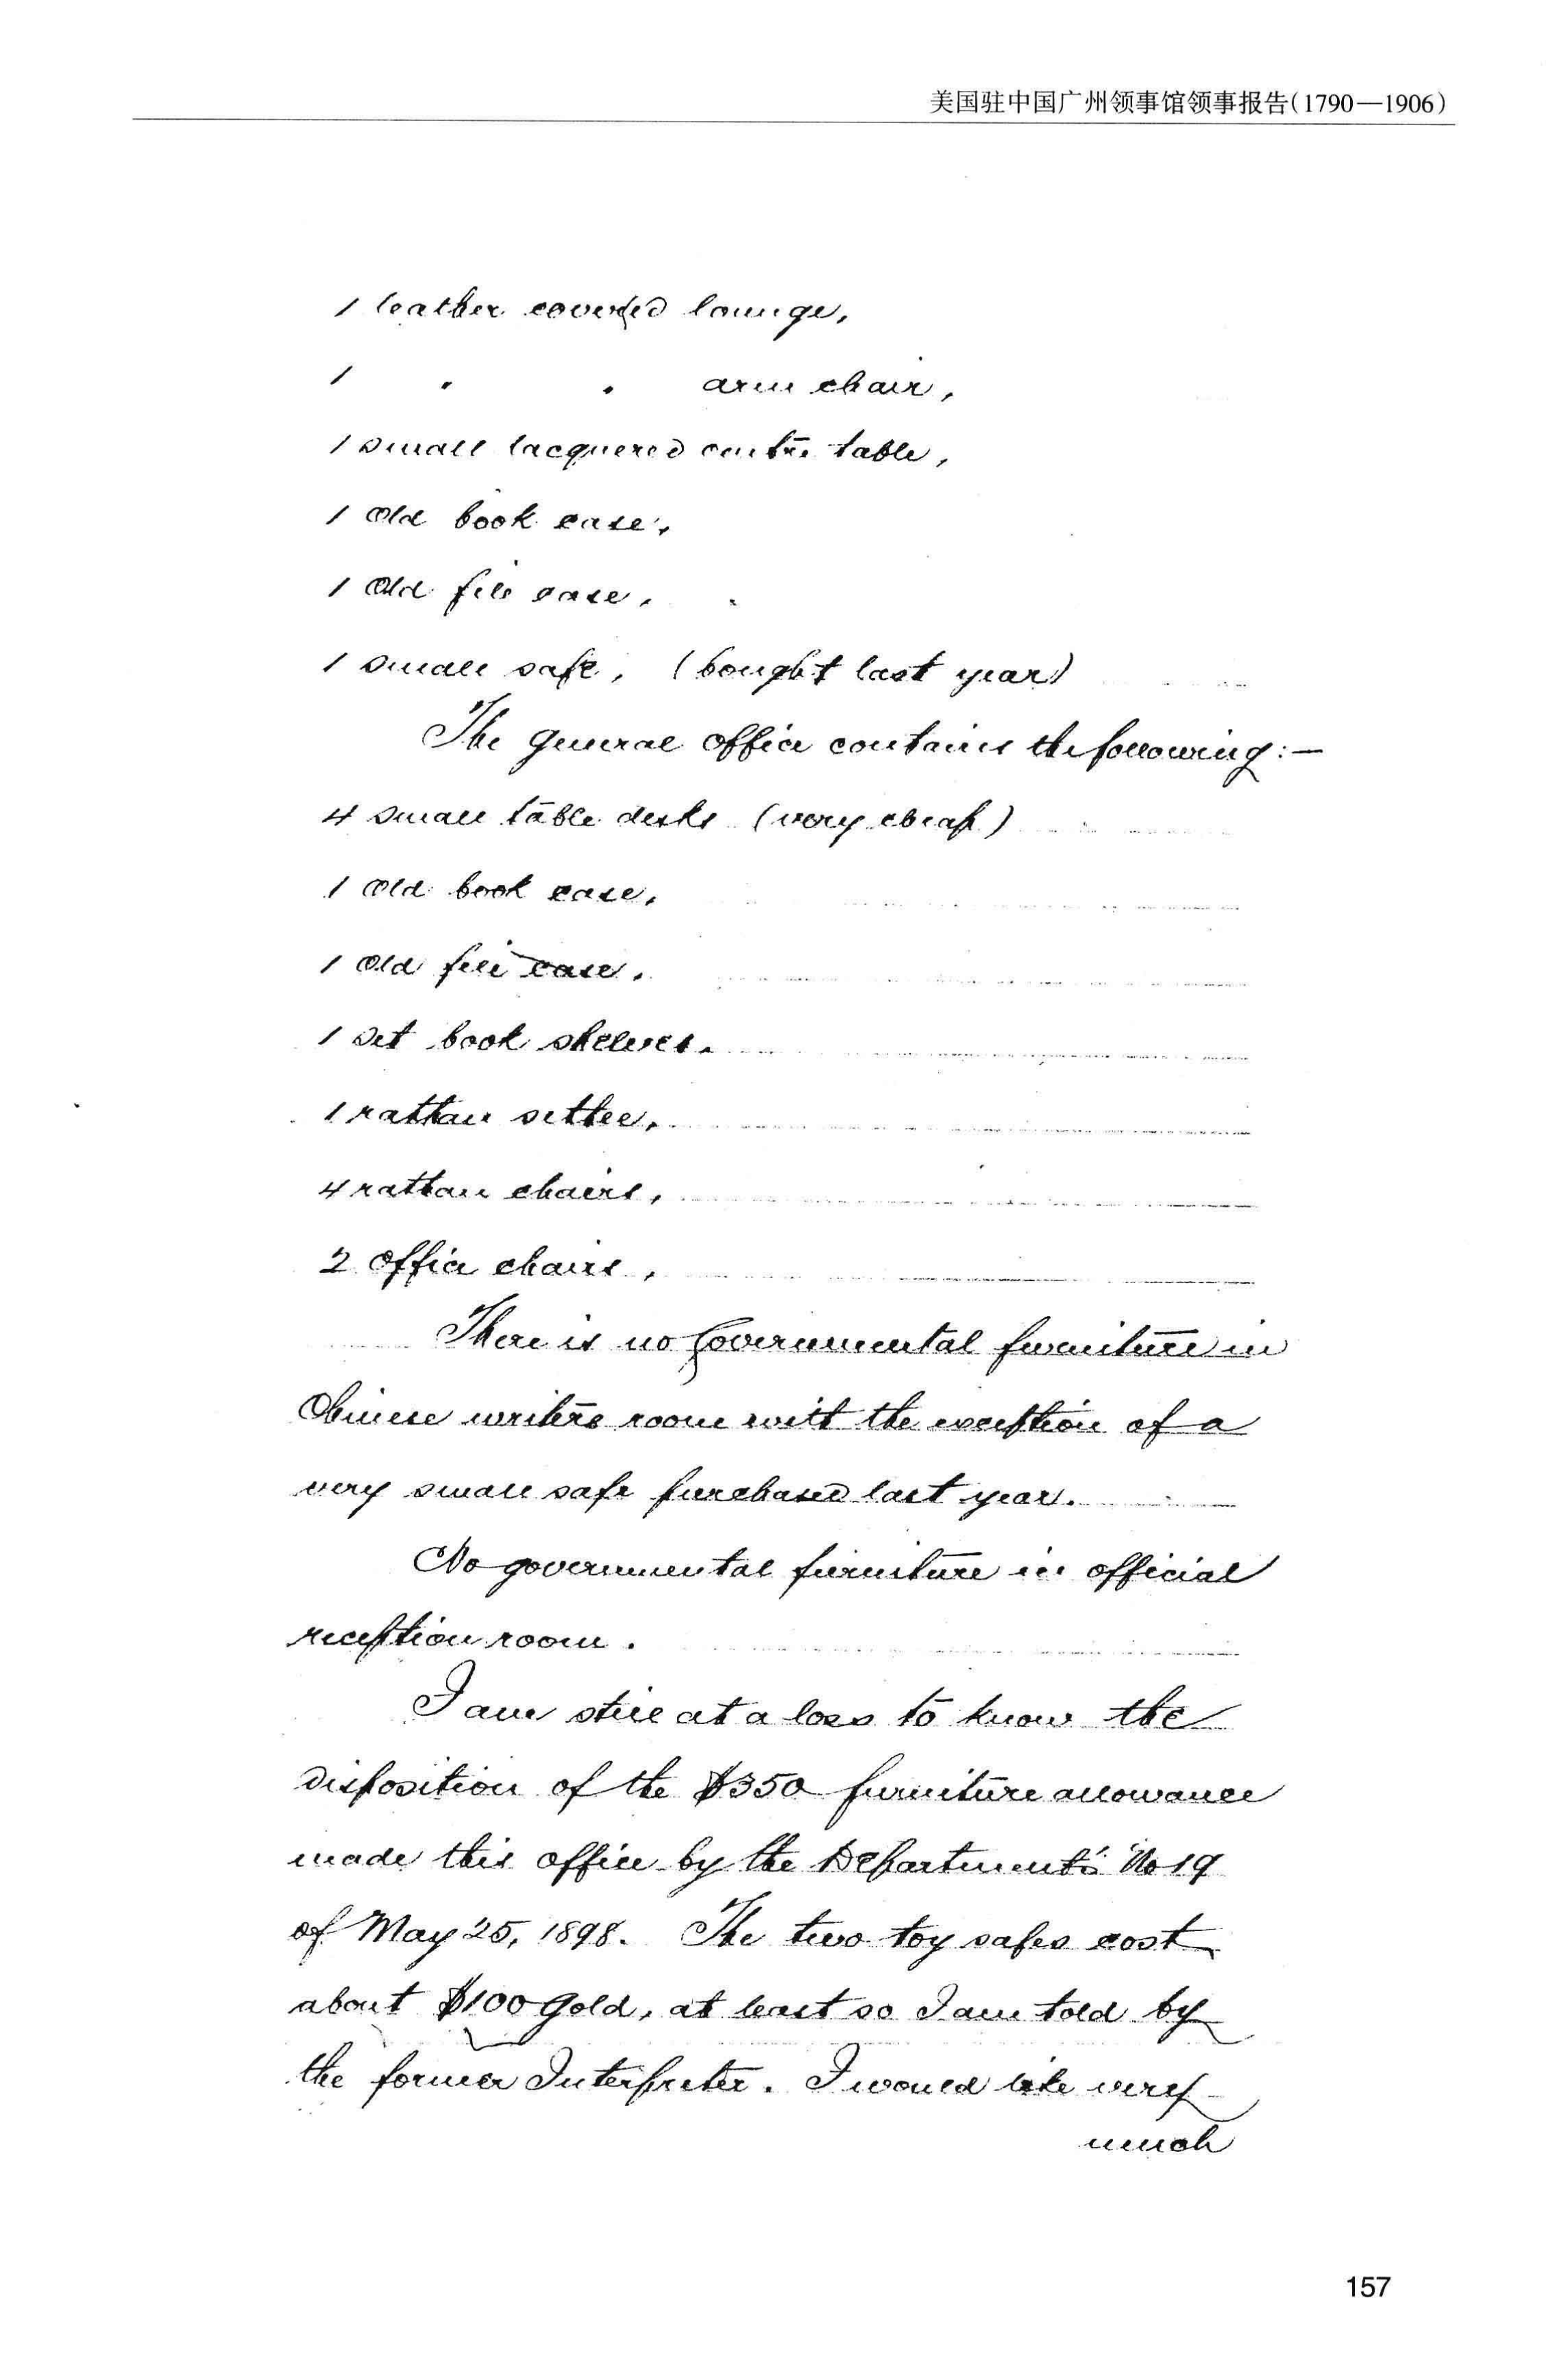 美国驻中国广州领事馆领事报告(1790—1906)
1 leather covered lounge,
1 " " arm chair,
1 small lacquered centre table,
1 old book case,
1 old file case,
1 small safe, (bought last year)
The general office contains the following:—
4 small table desks (very cheap)
1 old book case,
1 old file case,
1 set book shelves.
1 rattan settee,
4 rattan chairs,
2 office chairs,
There is no Governmental furniture in
Chinese writers room with the exception of a
very small safe purchased last year.
No governmental furniture in official
reception room.
I am still at a loss to know the
disposition of the $350 furniture allowance
made this office by the Department's No 19
of May 25, 1898. The two toy safes cost
about $100 gold, at least so I am told by
the former Interpreter. I would like very
much
157